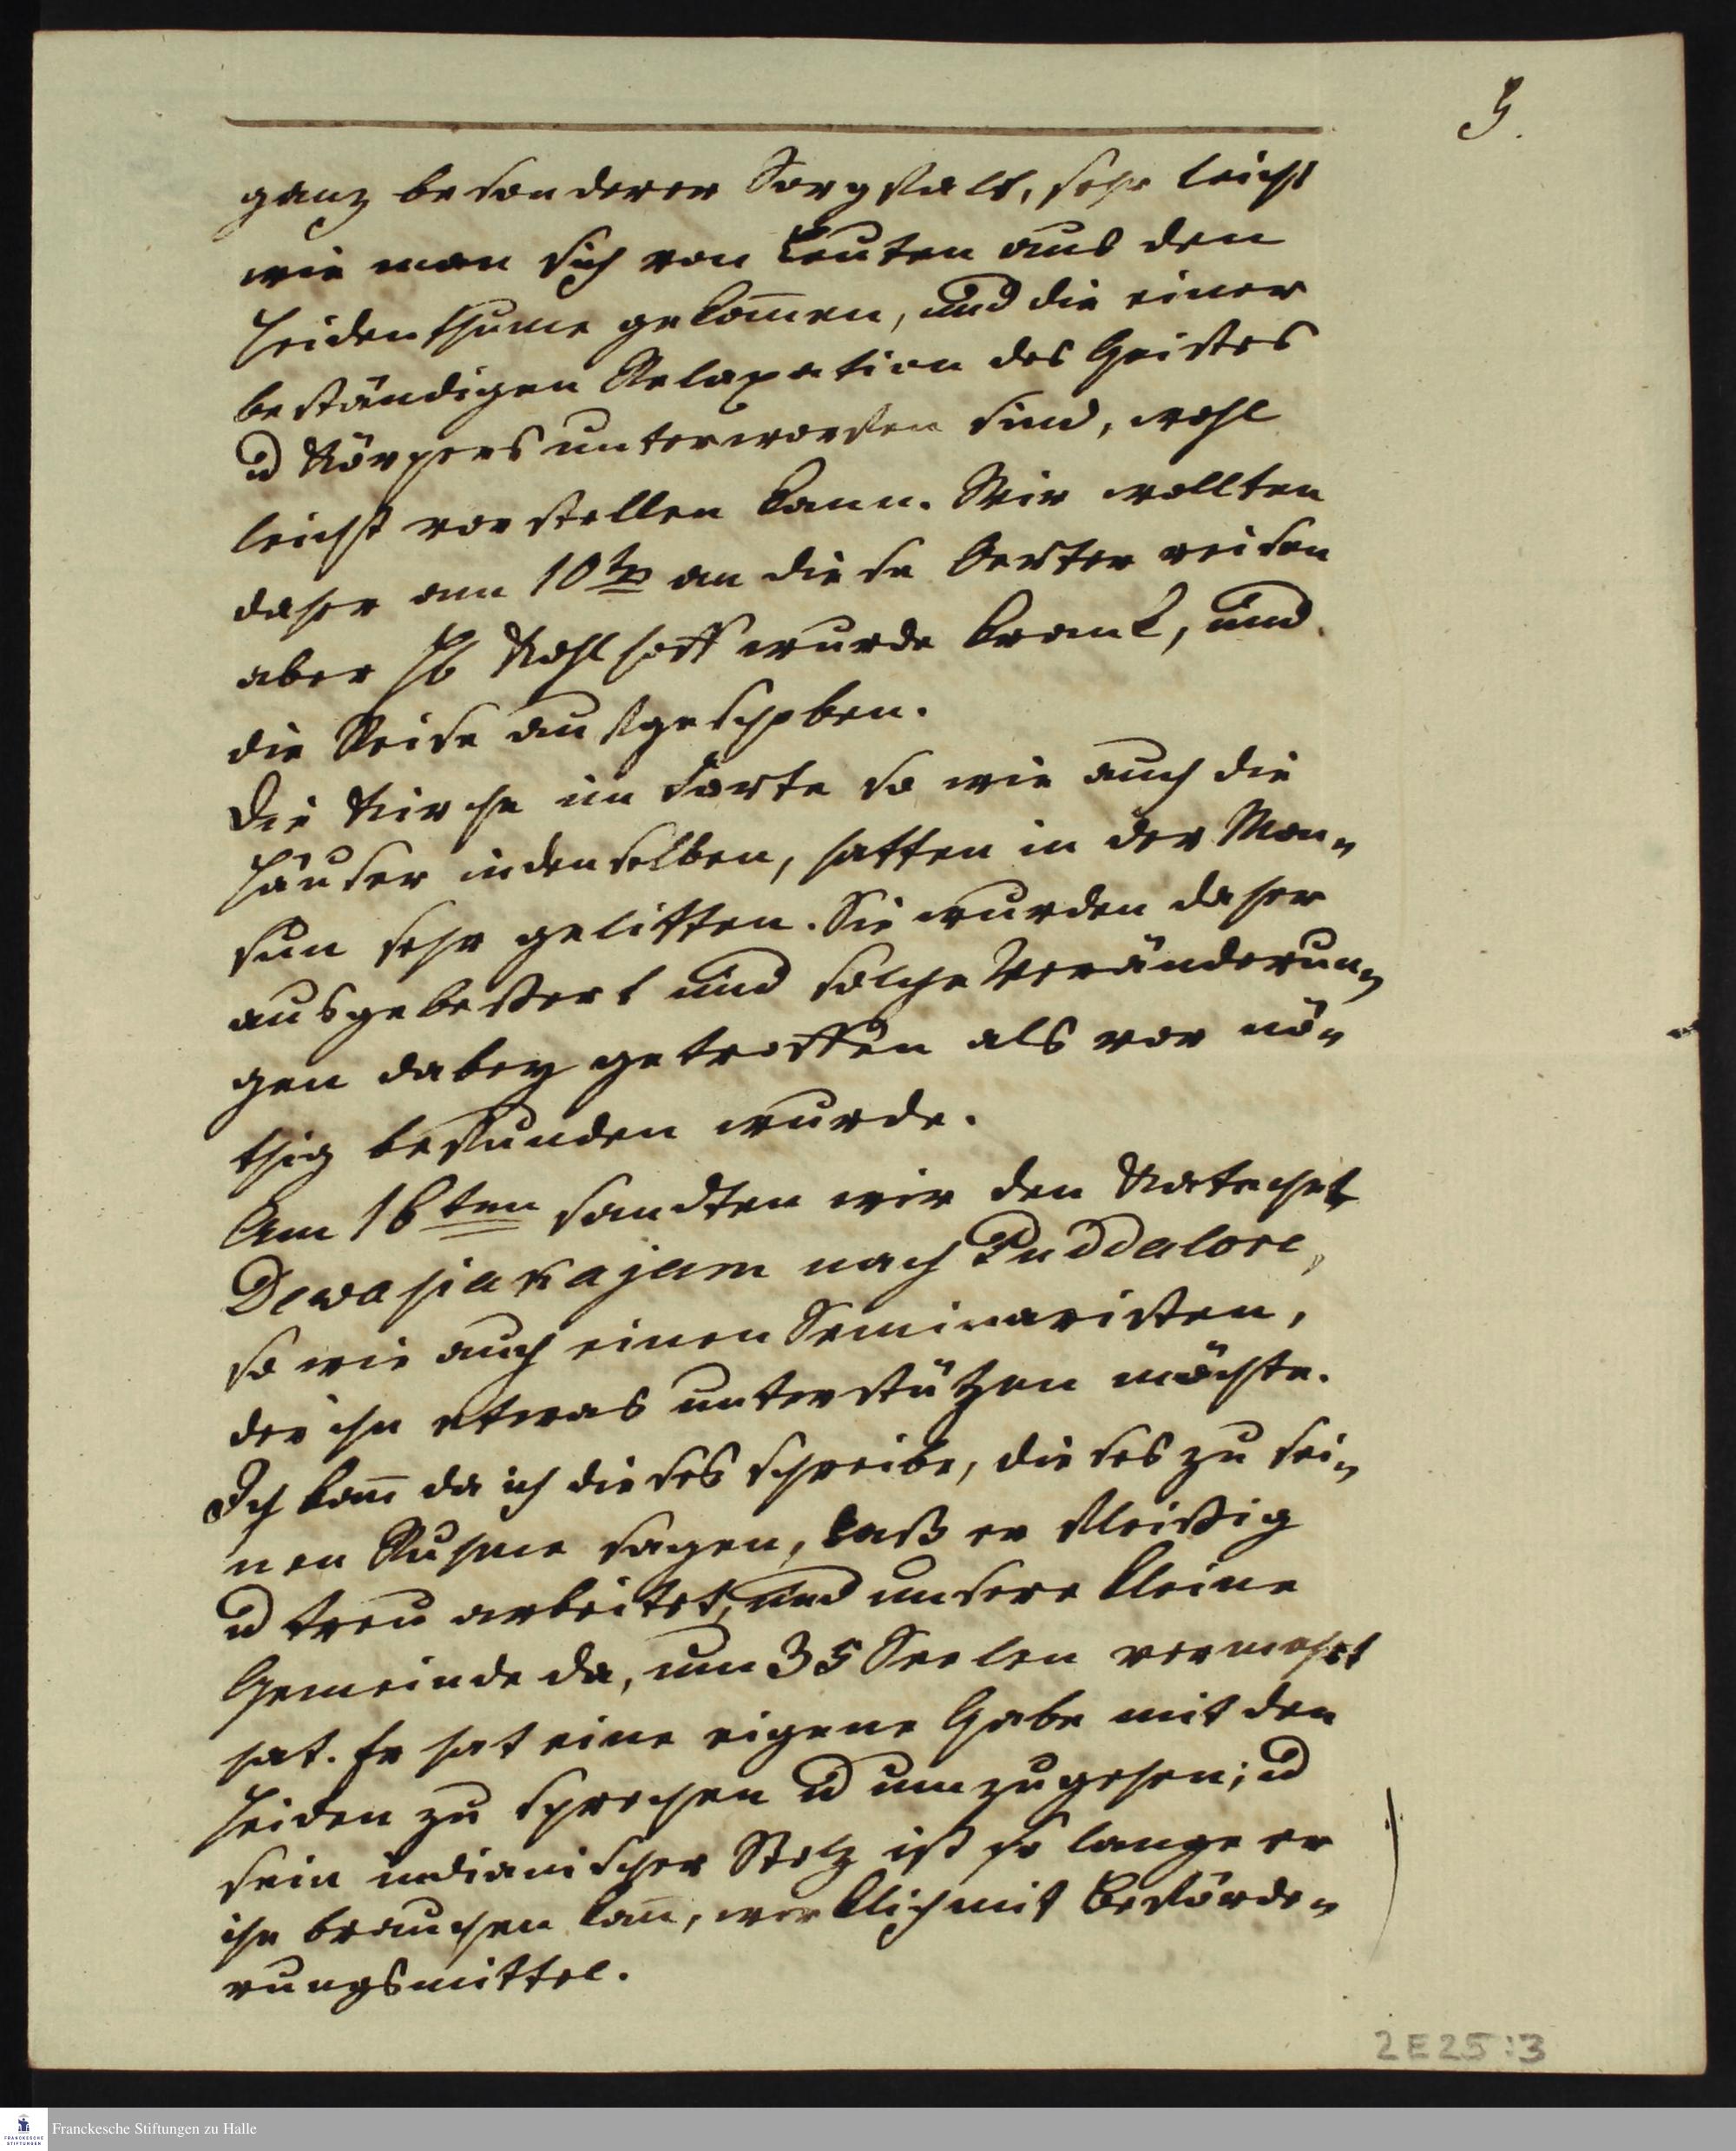 5.
ganz besonderer Sorgfalt, sehr leicht
wie man sich von Leuten aus den
Heidenthume gekom̄en, und die einer
beständigen Relaxation des Geistes
u Körpers unterworfen sind, wohl
leicht vorstellen kann. Wir wollten
daher am 10ten an diese Oerter reisen
aber Hb Kohlhoff wurde krank, und
die Reise aufgeschoben.
Die Kirche im Forte so wie auch die
Häuser in denselben, hatten in der Mon„
sun sehr gelitten. Sie wurden daher
ausgebessert und solche Veränderun„
gen dabey getroffen als vor nö„
thig befunden wurde.
Am 16ten sandten wir den Katechet
Dewasiakajam nach Puddalore,
so wie auch einen Seminaristen,
der ihn etwas unterstützen möchte.
Ich kan̄ da ich dieses schreibe, dieses zu sei„
nen Ruhme sagen, daß er fleißig
u treu arbeitet, und unsere kleine
Gemeinde da, um 35 Seelen vermehrt
hat. Er hat eine eigene Gabe mit den
Heiden zu sprechen u umzugehen; u
sein indianischer Stolz ist so lange er
ihn brauchen kan̄, wirklich mit Beförde„
rungsmittel.
2E25:3
Franckesche Stiftungen zu Halle
FRANCKESCHE
STIFTUNGEN